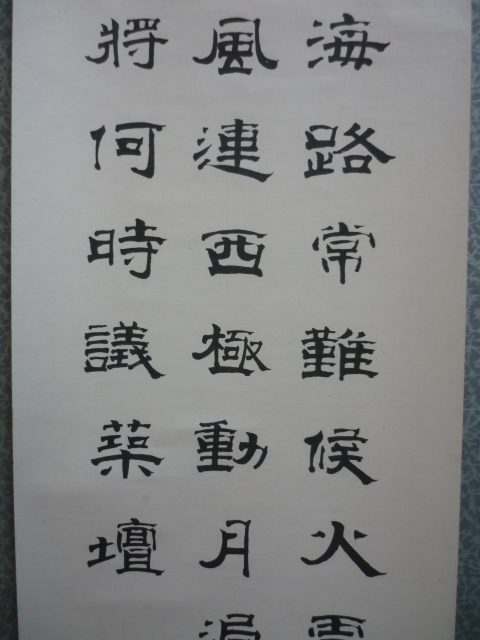 海路常難候火雲
風連西極動月過
將何時議築壇